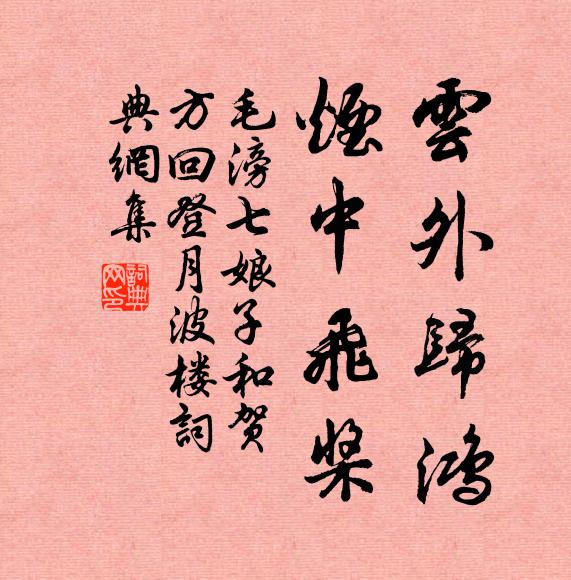 雲外歸鴻
煙中飛槳
毛滂七娘子和贺
方回登月波楼詞
典網集
詞典网印